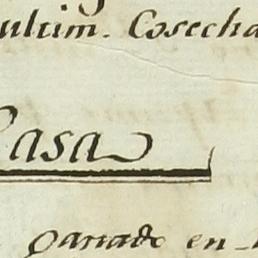 ultim. Cosecha
Casa
ganado en